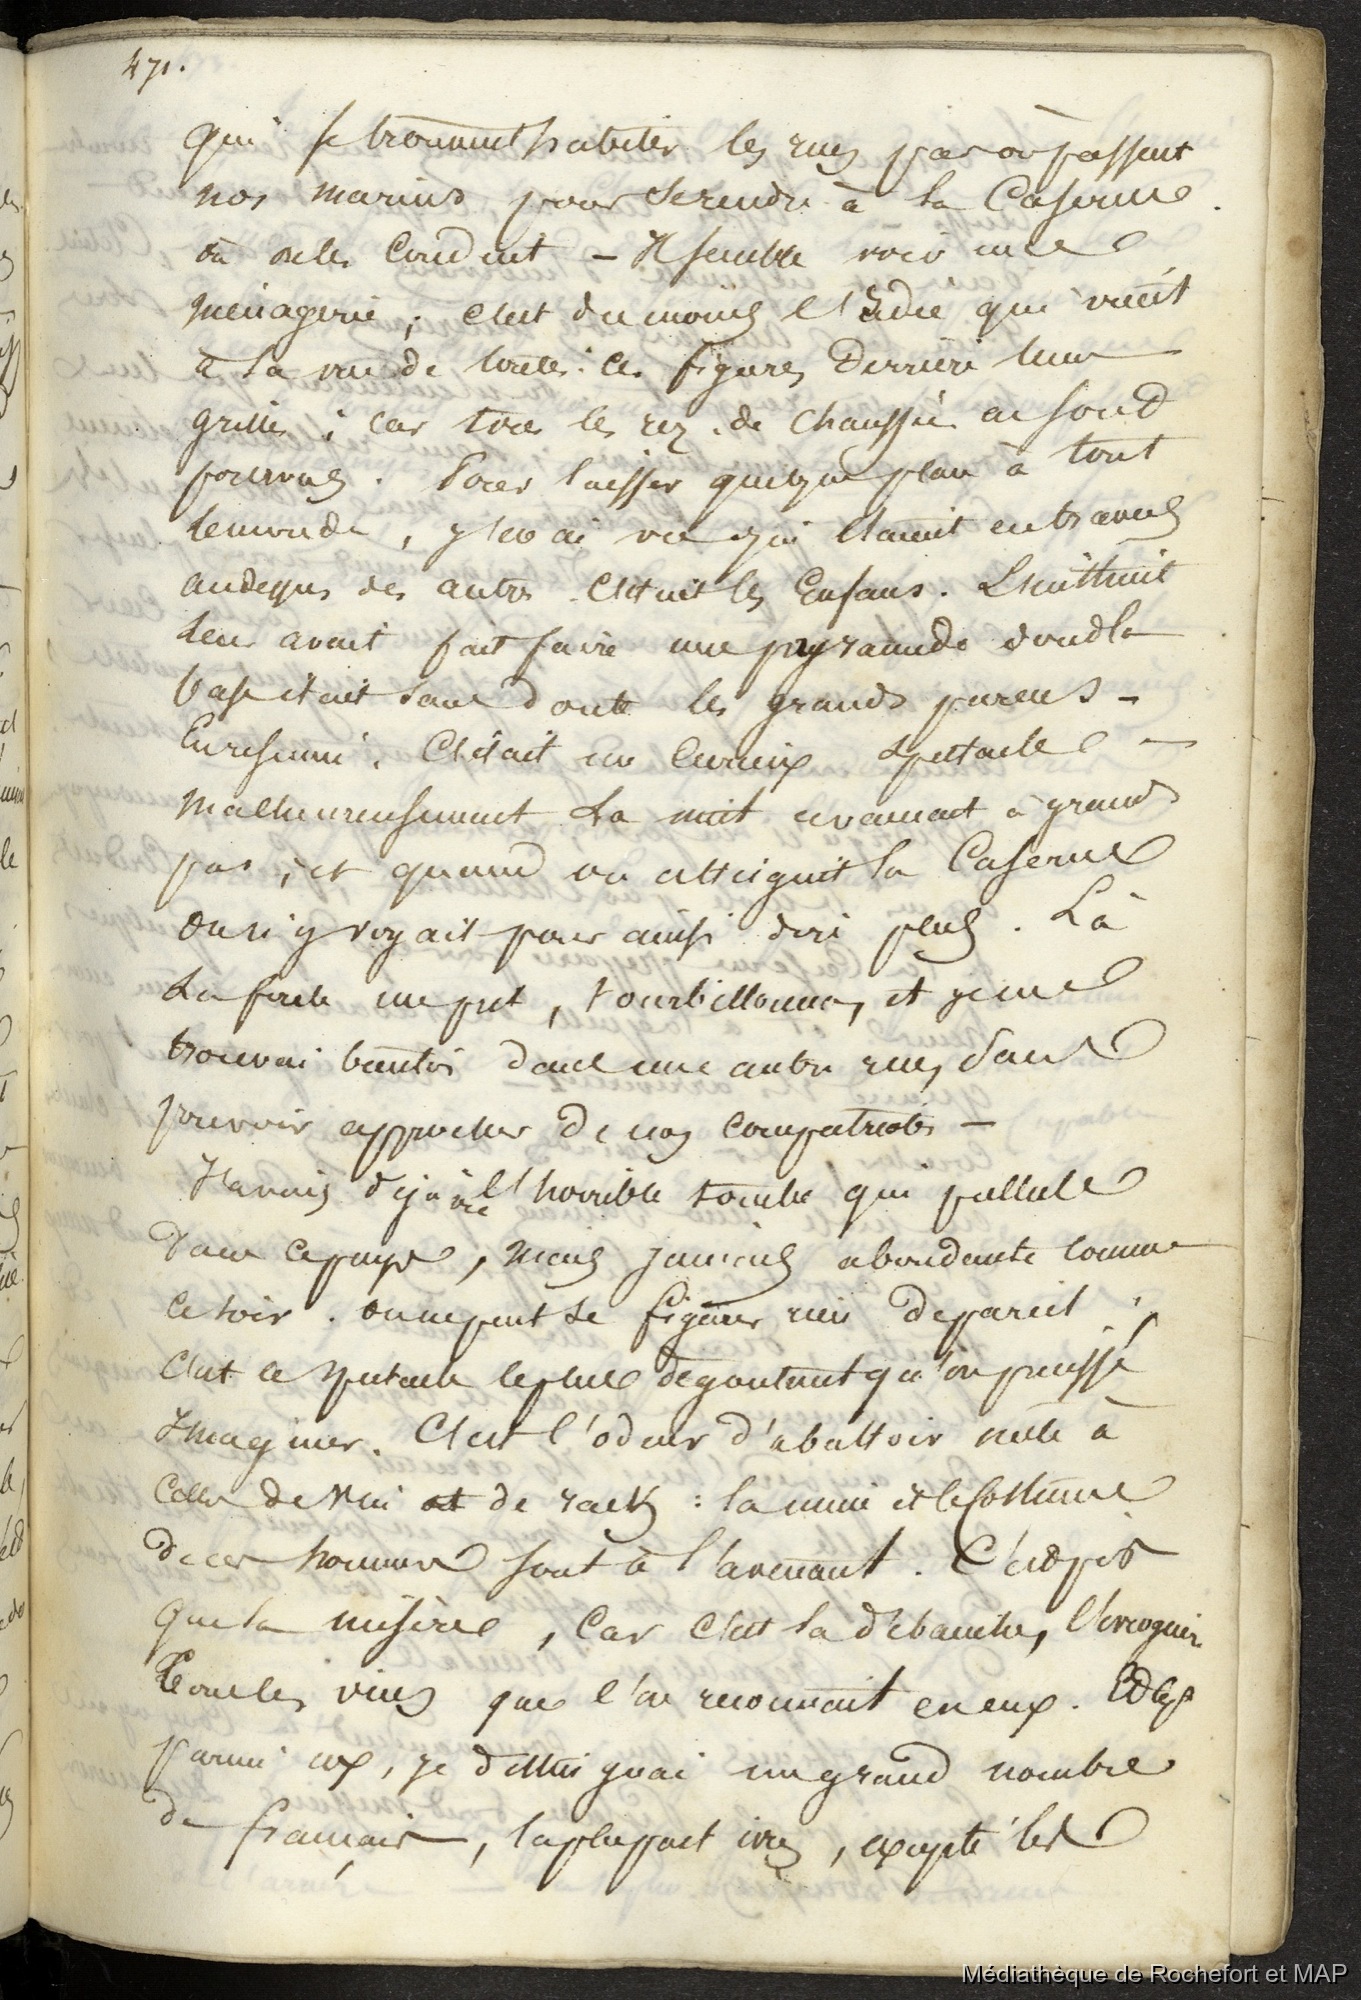 471.
qui se trouvent habiter les rues par où passent
nos marins pour se rendre à la Caserne
où on les conduit – Il semble voir une
ménagerie ; c'est du moins l'idée qui vient
à la vue de toutes ces figures derrière leur
grilles ; car tous les rez-de chaussée en sont
pourvus. Pour laisser quelque place à tout
le monde, il y en ai vu qui étaient en travers
au dessus des autres. C'était les Enfans. L'instinct
leur avait fait faire une pyramide dont la
base était sans doute les grands parens –
En résumé, C'était un curieux spectacle –
malheureusement la nuit avançait à grands
pas, et quand on atteignit la Caserne
on n'y voyait pour ainsi dire plus. Là
la foule me prit, tourbillonna, et je me
trouvai bientôt dans une autre rue, sans
pouvoir approcher de nos compatriotes –
J'avais déjà vu l'horrible tourbe qui pullule
dans ce pays, mais jamais abondante comme
ce soir. On ne peut se figurer rien de pareil ;
c'est le spectacle le plus dégoutant qu'on puisse
Imaginer. C'est l'odeur d'abattoir mêlé à
celle de vin et de rack : la mine et le Costume
de ces hommes sont à l'avenant. C'est pis
que la misère, car c'est la débauche, l'ivrognerie
tous les vices que l'on reconnait en eux. Et
parmi eux, je distinguai un grand nombre
de français, la plupart ivres, excepté les